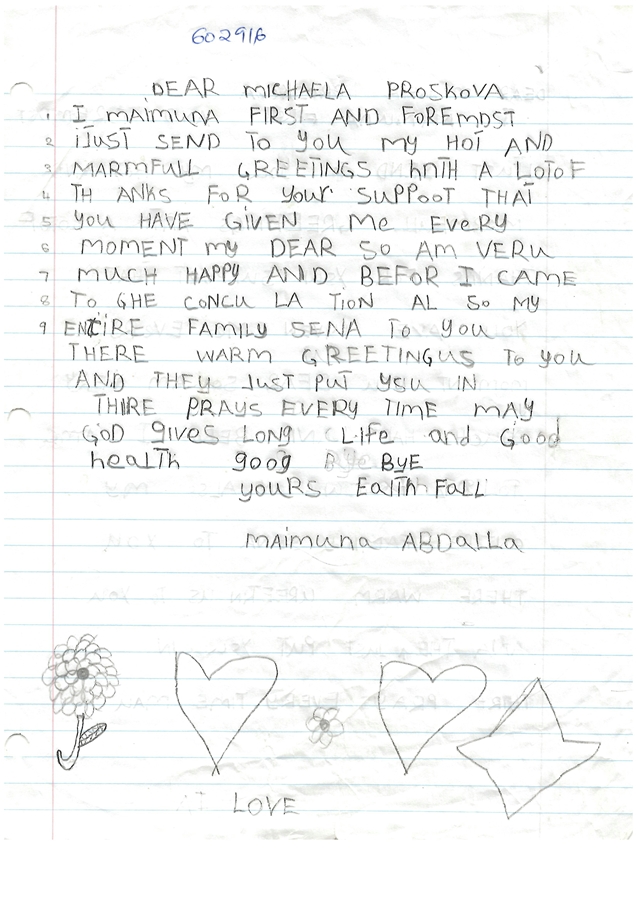 602916
DEAR MICHAELA PROSKOVA
1 I MAIMUNA FIRST AND FOREMOST
2 IJUST SEND TO YOU MY HOT AND
3 MARMFULL GREETINGS hnTH A LOTOF
4 TH ANKS FOR YOUR SUPPOOT THAT
5 YOU HAVE GIVEN Me EVERY
6 MOMENT my DEAR SO AM VERU
7 MUCH HAPPY AND BEFOR I CAME
8 TO GHE CONCU LA TION AL SO MY
9 ENTIRE FAMILY SENA TO YOU
THERE WARM GREETINGUS TO YOU
AND THEY JUST PUT YSU IN
THIRE PRAYS EVERY TIME MAY
GOD gives LONG Life and Good
heaLTH goog BYE
YOURS EaITh FALL
maimuna ABDALLA
LOVE